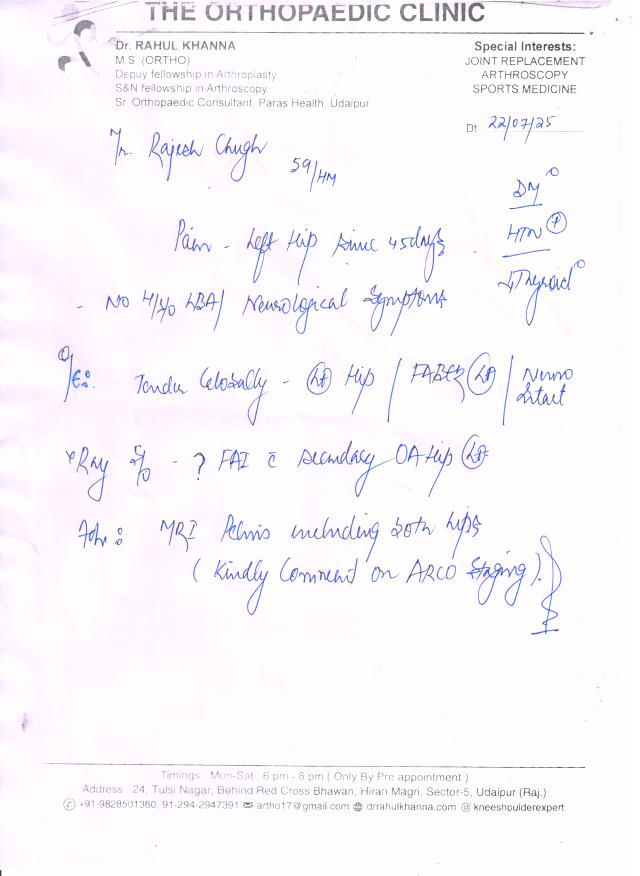 THE ORTHOPAEDIC CLINIC
Dr. RAHUL KHANNA
M S (ORTHO)
Depuy fellowship in Arthroplasty
S&N fellowship in Arthroscopy
Sr. Orthopaedic Consultant, Paras Health, Udaipur
Special Interests:
JOINT REPLACEMENT
ARTHROSCOPY
SPORTS MEDICINE
Dt 22/07/25
Mr. Rajesh Chugh 59/HM
DM 0
HTN +
Thyroid 0
Pain - Left Hip since 45 days
- No H/o LBA / Neurological Symptoms
O/E: Tender Globally - Lt Hip / FABER Lt / Neuro Intact
X Ray S/o - ? FAI c̄ secondary OA Hip Lt
Adv: MRI Pelvis including both hips
(Kindly Comment on ARCO Staging).
Timings : Mon-Sat : 6 pm - 8 pm ( Only By Pre appointment )
Address : 24, Tulsi Nagar, Behind Red Cross Bhawan, Hiran Magri, Sector-5, Udaipur (Raj.)
+91-9828501360, 91-294-2947391 artho17@gmail.com drrahulkhanna.com kneeshoulderexpert